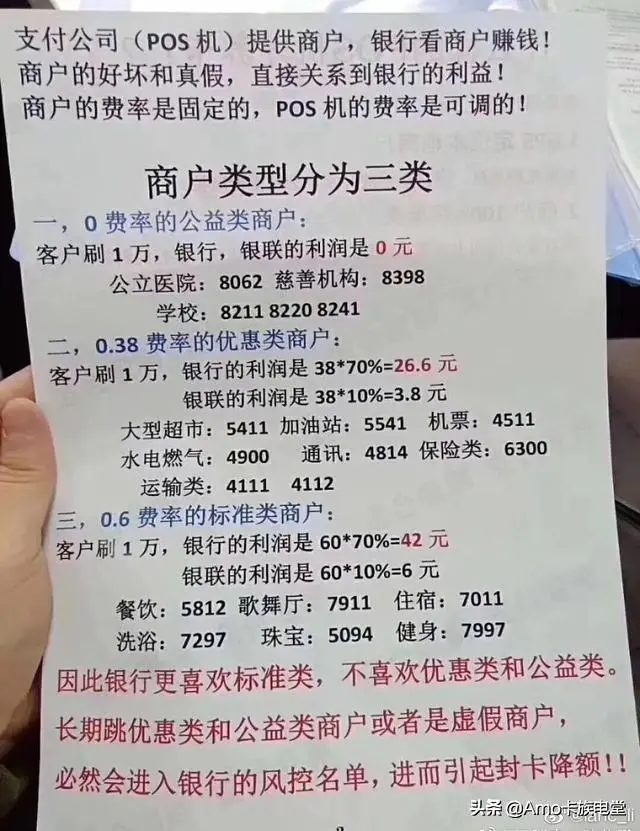 支付公司（POS 机）提供商户，银行看商户赚钱！
商户的好坏和真假，直接关系到银行的利益！
商户的费率是固定的，POS 机的费率是可调的！
商户类型分为三类
一，0 费率的公益类商户：
客户刷 1 万，银行，银联的利润是 0 元
公立医院：8062 慈善机构：8398
学校：8211 8220 8241
二，0.38 费率的优惠类商户：
客户刷 1 万，银行的利润是 38*70%=26.6 元
银联的利润是 38*10%=3.8 元
大型超市：5411 加油站：5541 机票：4511
水电燃气：4900 通讯：4814 保险类：6300
运输类：4111 4112
三，0.6 费率的标准类商户：
客户刷 1 万，银行的利润是 60*70%=42 元
银联的利润是 60*10%=6 元
餐饮：5812 歌舞厅：7911 住宿：7011
洗浴：7297 珠宝：5094 健身：7997
因此银行更喜欢标准类，不喜欢优惠类和公益类。
长期跳优惠类和公益类商户或者是虚假商户，
必然会进入银行的风控名单，进而引起封卡降额！！
头条 @Amo卡族电堂